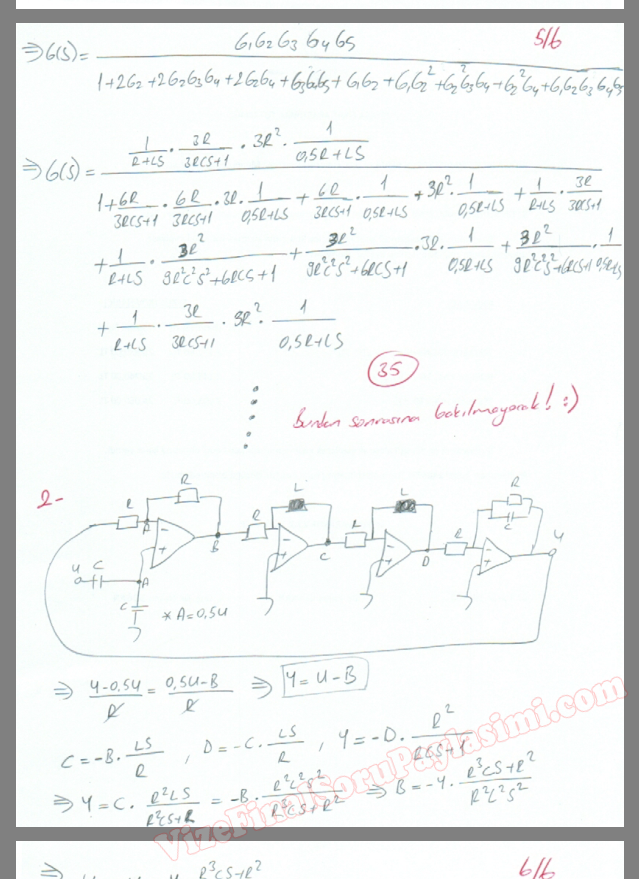 5/6
⇒ G(S) = G1G2G3G4G5 / 1+2G2+2G2G3G4+2G2G4+G3G4G5+G1G2+G1G2²+G2²G3G4+G2²G4+G1G2G3G4G5
⇒ G(S) = 1/(R+LS) · 3R/(3RCS+1) · 3R² · 1/(0,5R+LS)
1 + 6R/(3RCS+1) · 6R/(3RCS+1) · 3R · 1/(0,5R+LS) + 6R/(3RCS+1) · 1/(0,5R+LS) + 3R² · 1/(0,5R+LS) + 1/(R+LS) · 3R/(3RCS+1)
+ 1/(R+LS) · 3R²/(9R²C²S²+6RCS+1) + 3R²/(9R²C²S²+6RCS+1) · 3R · 1/(0,5R+LS) + 3R²/(9R²C²S²+6RCS+1) · 1/(0,5R+LS)
+ 1/(R+LS) · 3R/(3RCS+1) · 3R² · 1/(0,5R+LS)
35
Bundan sonrasına bakılmayacak! :)
2-
R R R L R L R R C
A B C D Y
U C A
C * A=0,5U
⇒ (Y-0,5U)/R = (0,5U-B)/R ⇒ Y = U - B
C = -B · LS/R , D = -C · LS/R , Y = -D · R²/(RCS+1)
⇒ Y = C · R²LS/(R²CS+R) = -B · R²L²S²/(R³CS+R²) ⇒ B = -Y · (R³CS+R²)/(R²L²S²)
VizeFinalSoruPaylasimi.com
⇒ R³CS+R²
6/6